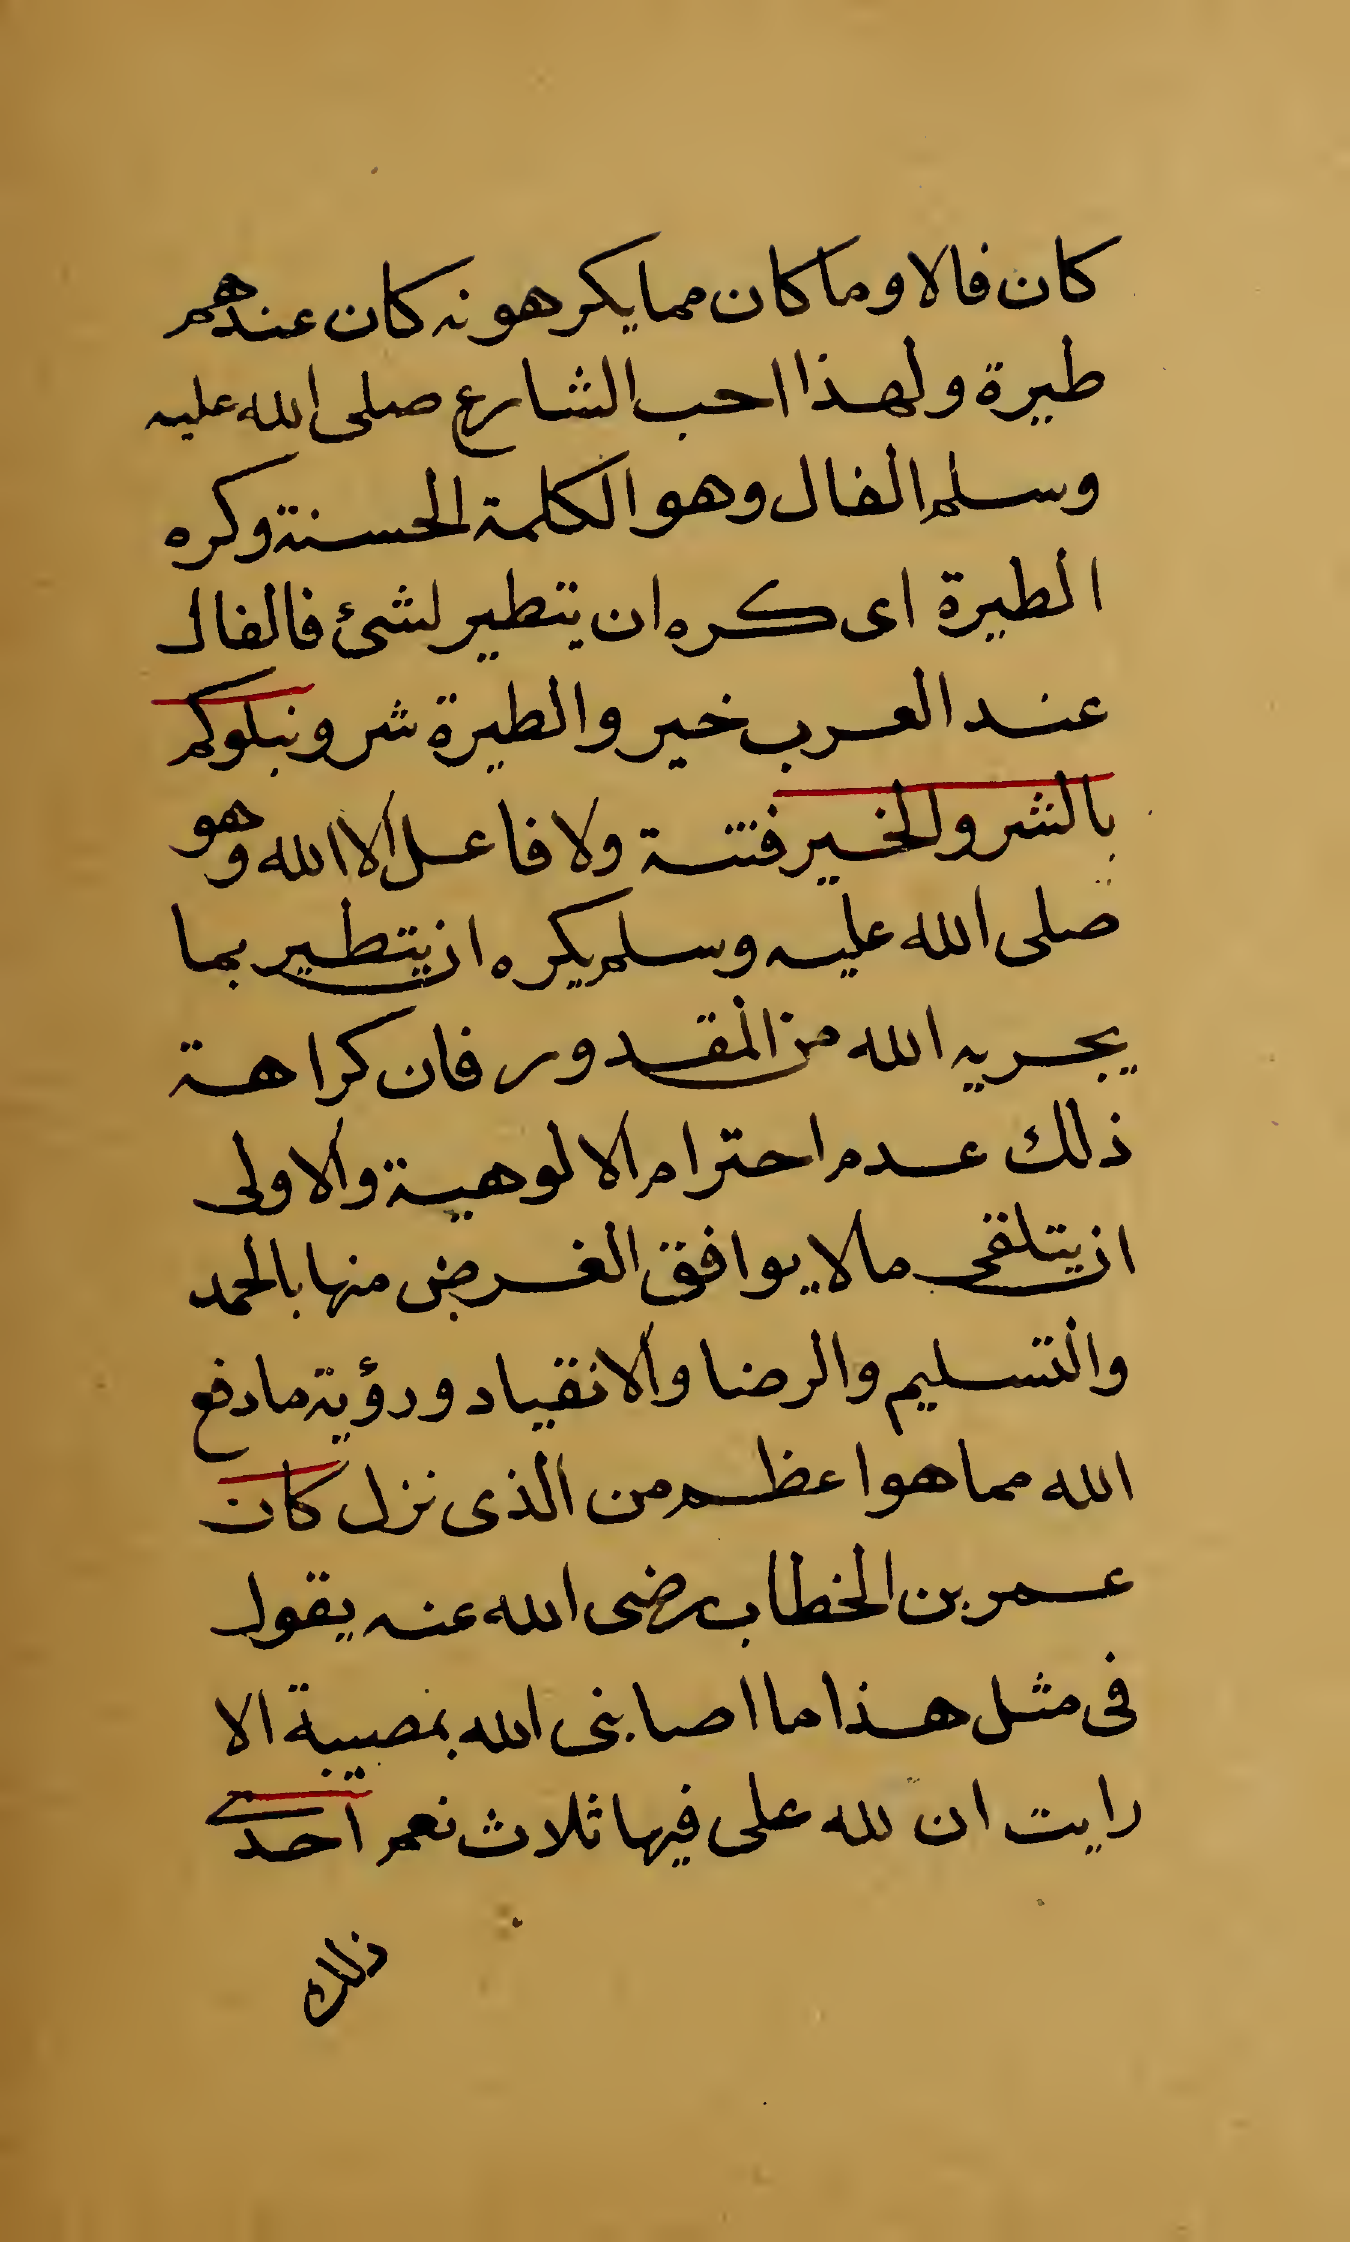 كان فالا وما كان مما يكرهونه كان عندهم
طيرة ولهذا احب الشارع صلى الله عليه
وسلم الفال وهو الكلمة الحسنة وكره
الطيرة اى كره ان يتطير لشئ فالفال
عند العرب خير والطيرة شر ونبلوكم
بالشر والخير فتنة ولا فاعل الا الله وهو
صلى الله عليه وسلم يكره ان يتطير بما
يجريه الله من المقدور فان كراهة
ذلك عدم احترام الالوهية والاولى
ان يتلقى ما لا يوافق الغرض منها بالحمد
والتسليم والرضا والانقياد ورؤية ما دفع
الله مما هو اعظم من الذى نزل كان
عمر بن الخطاب رضى الله عنه يقول
فى مثل هذا ما اصابنى الله بمصيبة الا
رايت ان لله على فيها ثلاث نعم احدى
ذلك